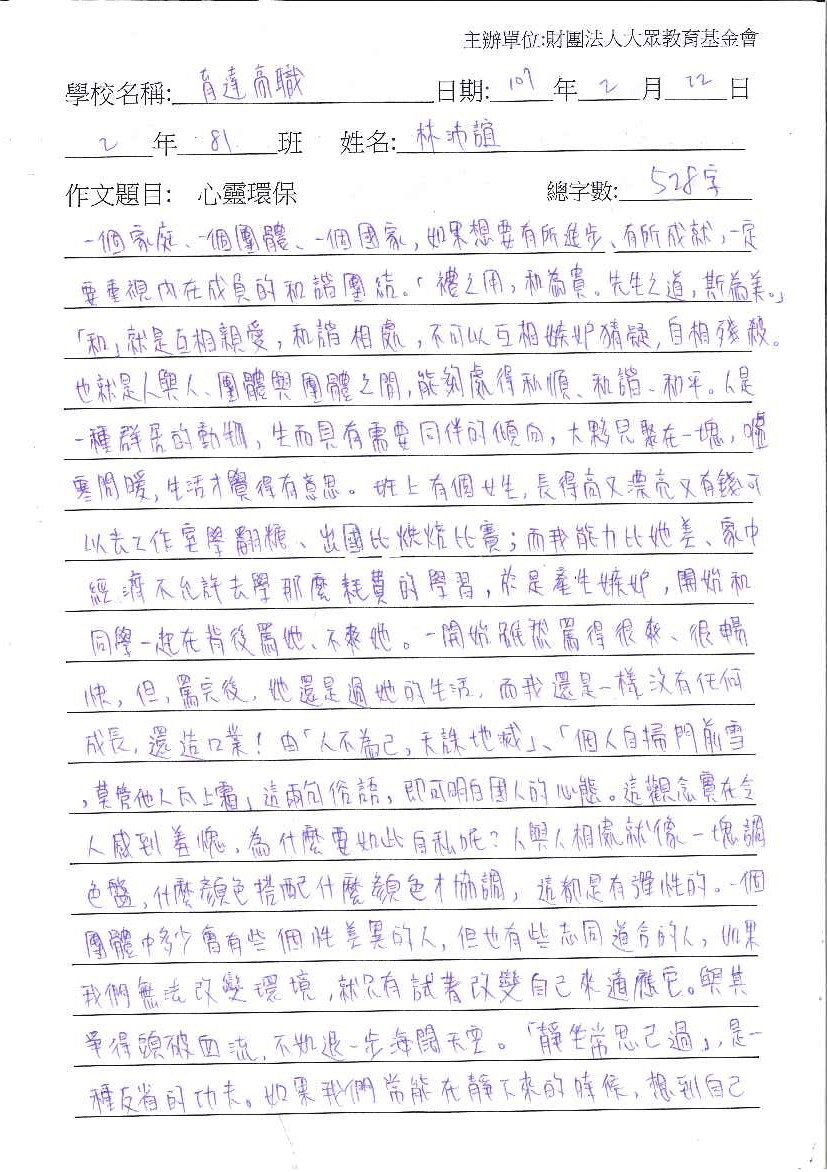 主辦單位:財團法人大眾教育基金會
學校名稱: 育達高職 日期: 107 年 2 月 22 日
2 年 81 班 姓名: 林沛誼
作文題目: 心靈環保 總字數: 528字
一個家庭、一個團體、一個國家,如果想要有所進步、有所成就,一定
要重視內在成員的和諧團結。「禮之用,和為貴。先生之道,斯為美。」
「和」就是互相親愛,和諧相處,不可以互相嫉妒猜疑,自相殘殺。
也就是人與人、團體與團體之間,能夠處得和順、和諧、和平。人是
一種群居的動物,生而具有需要同伴的傾向,大夥兒聚在一塊,噓
寒問暖,生活才覺得有意思。班上有個女生,長得高又漂亮又有錢可
以去工作室學翻糖、出國比烘焙比賽;而我能力比她差、家中
經濟不允許去學那麼耗費的學習,於是產生嫉妒,開始和
同學一起在背後罵她、不爽她。一開始雖然罵得很爽、很暢
快,但,罵完後,她還是過她的生活,而我還是一樣沒有任何
成長,還造口業!由「人不為己,天誅地滅」、「個人自掃門前雪
,莫管他人瓦上霜」這兩句俗語,即可明白國人的心態。這觀念實在令
人感到羞愧,為什麼要如此自私呢?人與人相處就像一塊調
色盤,什麼顏色搭配什麼顏色才協調,這都是有彈性的。一個
團體中多少會有些個性差異的人,但也有些志同道合的人,如果
我們無法改變環境,就只有試著改變自己來適應它。與其
爭得頭破血流,不如退一步海闊天空。「靜坐常思己過」,是一
種反省的功夫。如果我們常能在靜下來的時候,想到自己